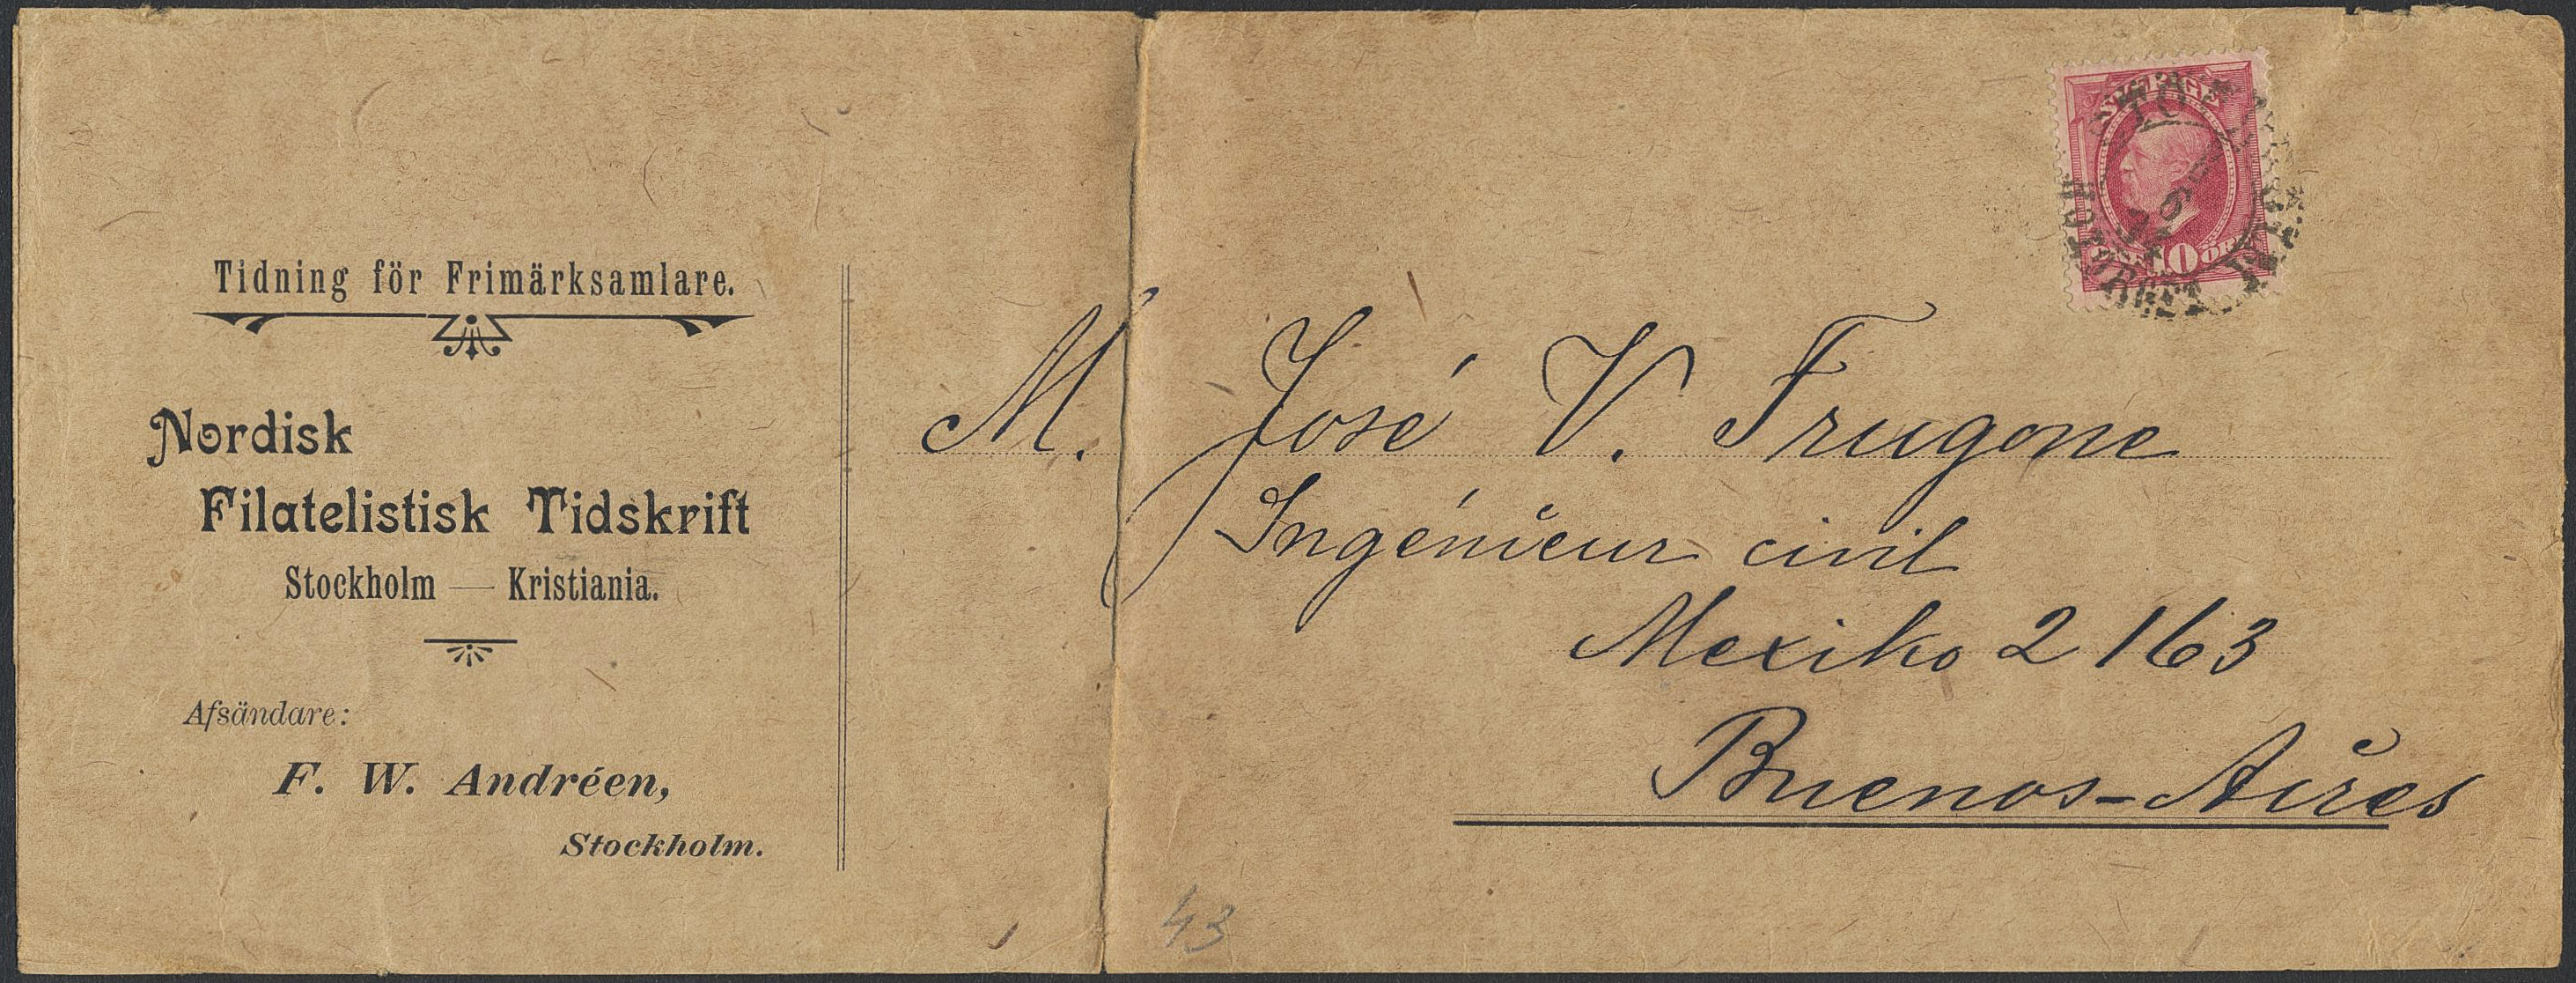 Tidning för Frimärksamlare.
Nordisk
Filatelistisk Tidskrift
Stockholm — Kristiania.
Afsändare:
F. W. Andréen,
Stockholm.
SVERIGE
10 ÖRE
M. José V. Frugone
Ingénieur civil
Mexiko 2163
Buenos-Aires
43